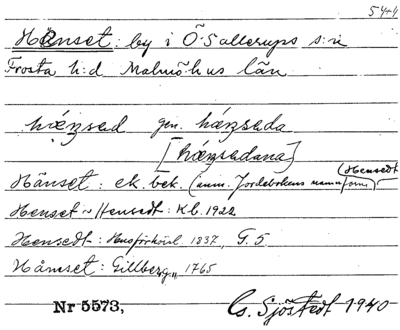 5444
Hänset: by i Ö. Sallerups s:n
Frosta h:d Malmöhus län
hǽnsad gen. hǽnsada
[hǽnsadana]
Hänset: ek. bek. (anm. Jordebokens namnform) (Hensedt
Henset ~ Hensedt: Kb. 1922
Hensedt: Husförhörsl. 1837, G. 5
Hånset: Gillberg, 1765
Nr 5573, G. Sjöstedt 1940